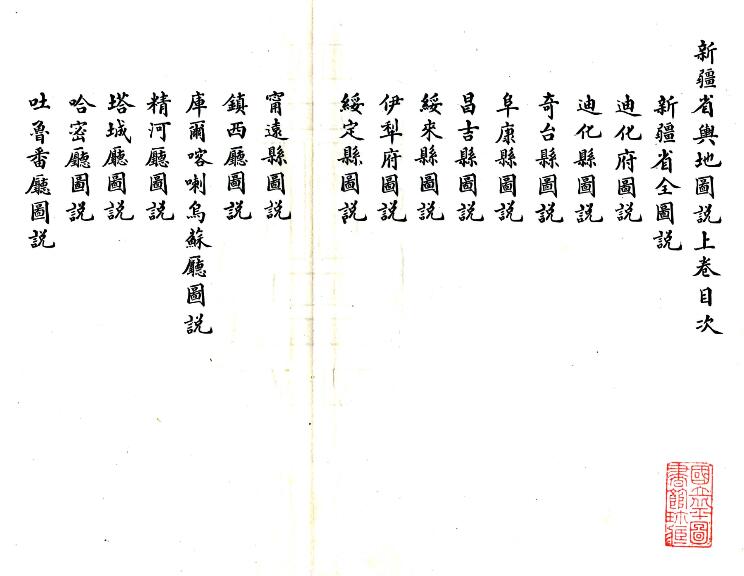 新疆省輿地圖説上卷目次
新疆省全圖説
迪化府圖説
迪化縣圖説
奇台縣圖説
阜康縣圖説
昌吉縣圖説
綏來縣圖説
伊犁府圖説
綏定縣圖説
甯遠縣圖説
鎮西廳圖説
庫爾喀喇烏蘇廳圖説
精河廳圖説
塔城廳圖説
哈密廳圖説
吐魯番廳圖説
國立北平圖書館珍藏